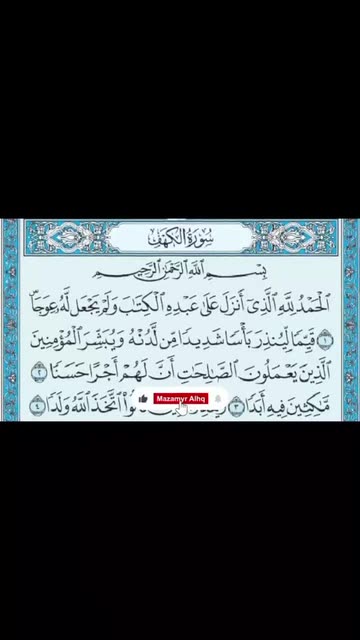 سُورَةُ الكَهْفِ
بِسْمِ اللَّهِ الرَّحْمَٰنِ الرَّحِيمِ
الْحَمْدُ لِلَّهِ الَّذِي أَنزَلَ عَلَىٰ عَبْدِهِ الْكِتَٰبَ وَلَمْ يَجْعَل لَّهُ عِوَجَاۜ
١ قَيِّمًا لِّيُنذِرَ بَأْسًا شَدِيدًا مِّن لَّدُنْهُ وَيُبَشِّرَ الْمُؤْمِنِينَ
الَّذِينَ يَعْمَلُونَ الصَّٰلِحَٰتِ أَنَّ لَهُمْ أَجْرًا حَسَنًا ٢
مَّٰكِثِينَ فِيهِ أَبَدًا ٣ اتَّخَذَ اللَّهُ وَلَدًا ٤
Mazamyr Alhq